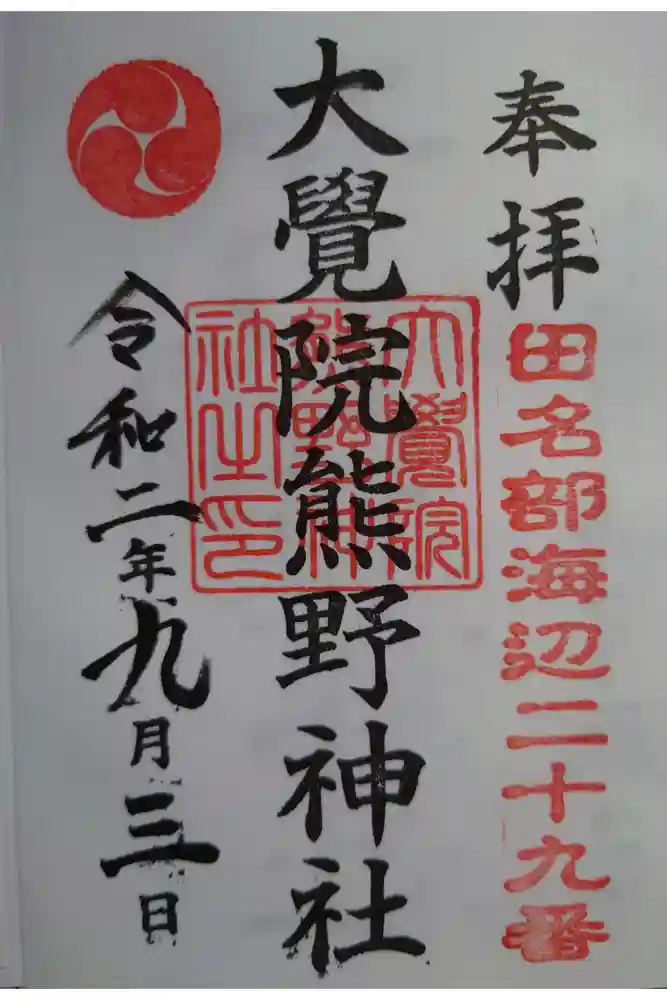 奉拝
田名部海辺二十九番
大覺院熊野神社
大覺院
熊野神
社之印
令和二年九月三日